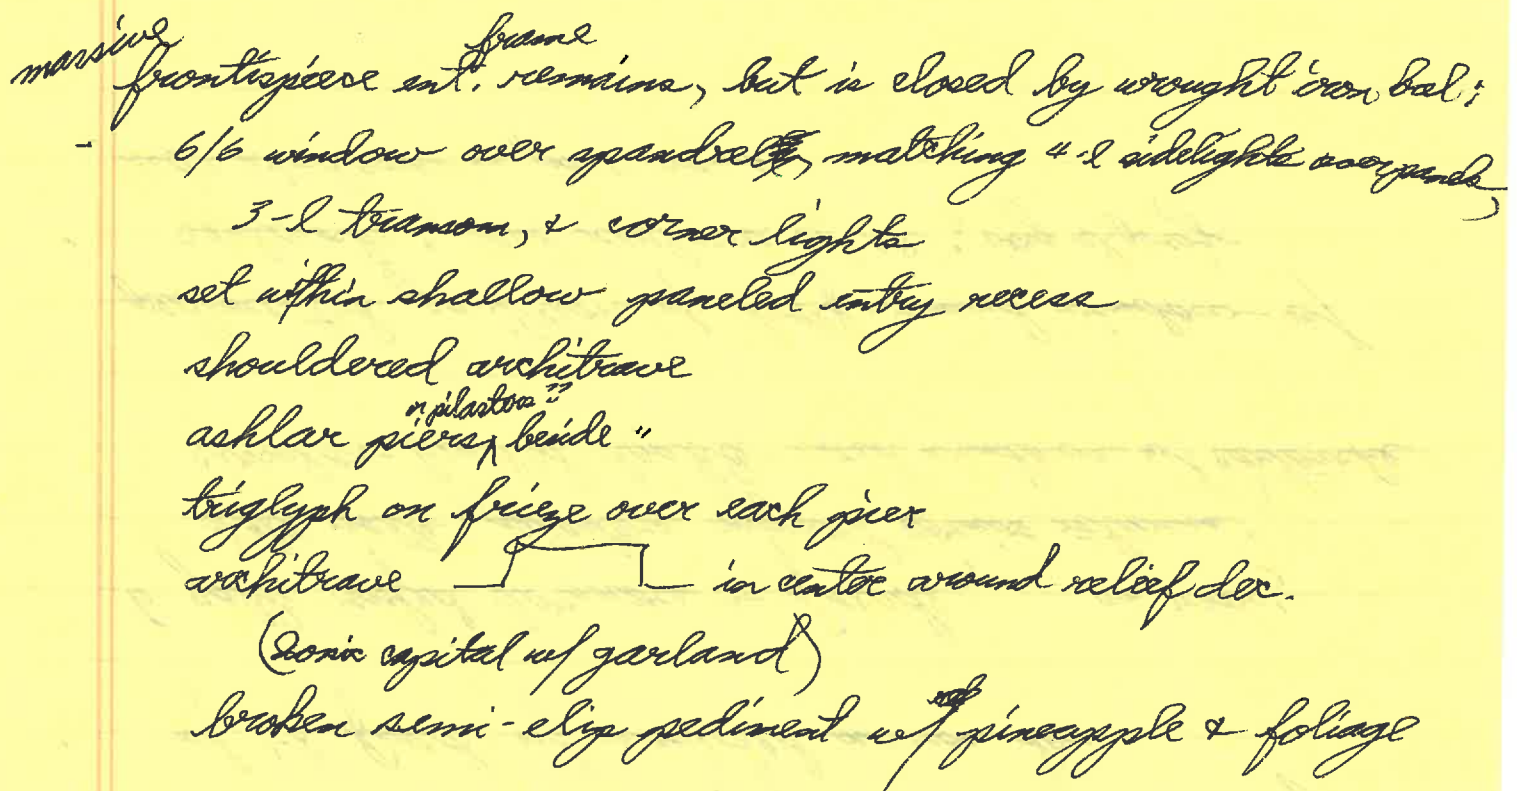 massive frontispiece ent. frame remains, but is closed by wrought iron bal;
- 6/6 window over spandrel, matching 4-l sidelights over panels,
3-l transom, & corner lights
set within shallow paneled entry recess
shouldered architrave
ashlar piers or pilasters?? beside "
triglyph on frieze over each pier
architrave in center around relief dec.
(Ionic capital w/ garland)
broken semi-elip pediment w/ pineapple & foliage